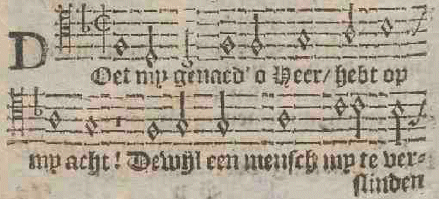 DOet my genaed' o Heer/ hebt op
my acht! Dewijl een mensch my te ver-
slinden